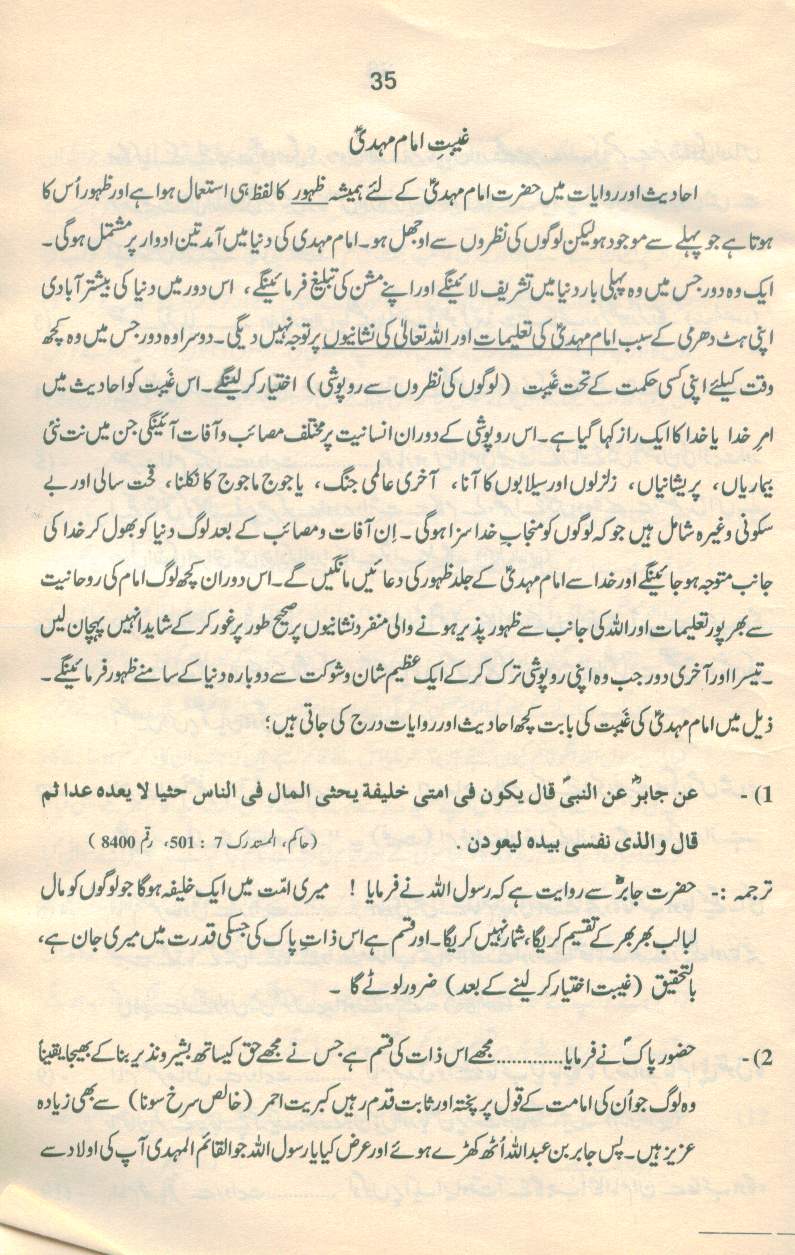 35
غیبتِ امام مہدیؑ
احادیث اور روایات میں حضرت امام مہدیؑ کے لئے ہمیشہ ظہور کا لفظ ہی استعمال ہوا ہے اور ظہور اُس کا
ہوتا ہے جو پہلے سے موجود ہو لیکن لوگوں کی نظروں سے اوجھل ہو۔ امام مہدی کی دنیا میں آمد تین ادوار پر مشتمل ہوگی۔
ایک وہ دور جس میں وہ پہلی بار دنیا میں تشریف لائینگے اور اپنے مشن کی تبلیغ فرمائینگے، اس دور میں دنیا کی بیشتر آبادی
اپنی ہٹ دھرمی کے سبب امام مہدیؑ کی تعلیمات اور اللہ تعالیٰ کی نشانیوں پر توجہ نہیں دیگی۔ دوسرا وہ دور جس میں وہ کچھ
وقت کیلئے اپنی کسی حکمت کے تحت غَیبت (لوگوں کی نظروں سے روپوشی) اختیار کر لینگے۔ اس غَیبت کو احادیث میں
امرِ خدا یا خدا کا ایک راز کہا گیا ہے۔ اس روپوشی کے دوران انسانیت پر مختلف مصائب و آفات آئینگی جن میں نت نئی
بیماریاں، پریشانیاں، زلزلوں اور سیلابوں کا آنا، آخری عالمی جنگ، یاجوج ماجوج کا نکلنا، قحت سالی اور بے
سکونی وغیرہ شامل ہیں جو کہ لوگوں کو منجابِ خدا سزا ہوگی۔ اِن آفات و مصائب کے بعد لوگ دنیا کو بھول کر خدا کی
جانب متوجہ ہو جائینگے اور خدا سے امام مہدیؑ کے جلد ظہور کی دعائیں مانگیں گے۔ اس دوران کچھ لوگ امام کی روحانیت
سے بھرپور تعلیمات اور اللہ کی جانب سے ظہور پذیر ہونے والی منفرد نشانیوں پر صحیح طور پر غور کر کے شاید انہیں پہچان لیں
۔ تیسرا اور آخری دور جب وہ اپنی روپوشی ترک کر کے ایک عظیم شان و شوکت سے دوبارہ دنیا کے سامنے ظہور فرمائینگے۔
ذیل میں امام مہدیؑ کی غَیبت کی بابت کچھ احادیث اور روایات درج کی جاتی ہیں؛
1)- عن جابرؓ عن النبیؐ قال یکون فی امتی خلیفة یحثی المال فی الناس حثیا لا یعده عدا ثم
قال و الذی نفسی بیده لیعودن . (حاکم، المستدرک 7 : 501، رقم 8400)
ترجمہ :- حضرت جابرؓ سے روایت ہے کہ رسول اللہ نے فرمایا ! میری امّت میں ایک خلیفہ ہوگا جو لوگوں کو مال
لبالب بھر بھر کے تقسیم کریگا، شمار نہیں کریگا۔ اور قسم ہے اس ذاتِ پاک کی جسکی قدرت میں میری جان ہے،
بالتحقیق (غیبت اختیار کر لینے کے بعد) ضرور لوٹے گا ۔
2)- حضور پاکؐ نے فرمایا............. مجھے اس ذات کی قسم ہے جس نے مجھے حق کیساتھ بشیر و نذیر بنا کے بھیجا یقیناً
وہ لوگ جو اُن کی امامت کے قول پر پختہ اور ثابت قدم رہیں کبریت احمر (خالص سرخ سونا) سے بھی زیادہ
عزیز ہیں۔ پس جابر بن عبداللہ اُٹھ کھڑے ہوئے اور عرض کیا یا رسول اللہ جو القائم المہدی آپ کی اولاد سے